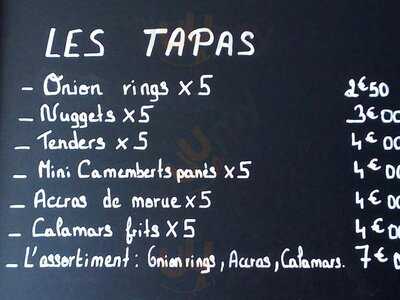 LES TAPAS
- Onion rings x5 2€50
- Nuggets x5 3€00
- Tenders x5 4€00
- Mini Camemberts panés x5 4€00
- Accras de morue x5 4€00
- Calamars frits x5 4€00
- L'assortiment : Onion rings, Accras, Calamars. 7€0